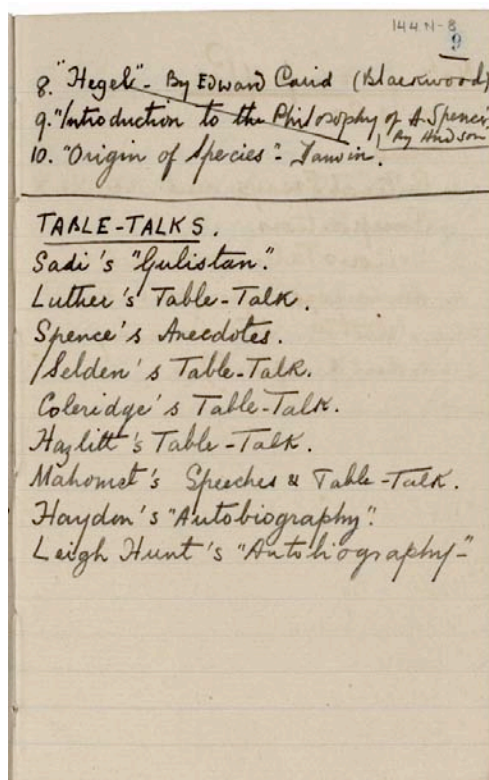 144 N-8
9
8. "Hegel" - By Edward Caird (Blackwood)
9. "Introduction to the Philosophy of H. Spencer"
By Hudson
10. "Origin of Species" - Darwin.
TABLE-TALKS.
Sadi's "Gulistan".
Luther's Table-Talk.
Spence's Anecdotes.
Selden's Table-Talk.
Coleridge's Table-Talk.
Hazlitt's Table-Talk.
Mahomet's Speeches & Table-Talk.
Haydon's "Autobiography".
Leigh Hunt's "Autobiography"-